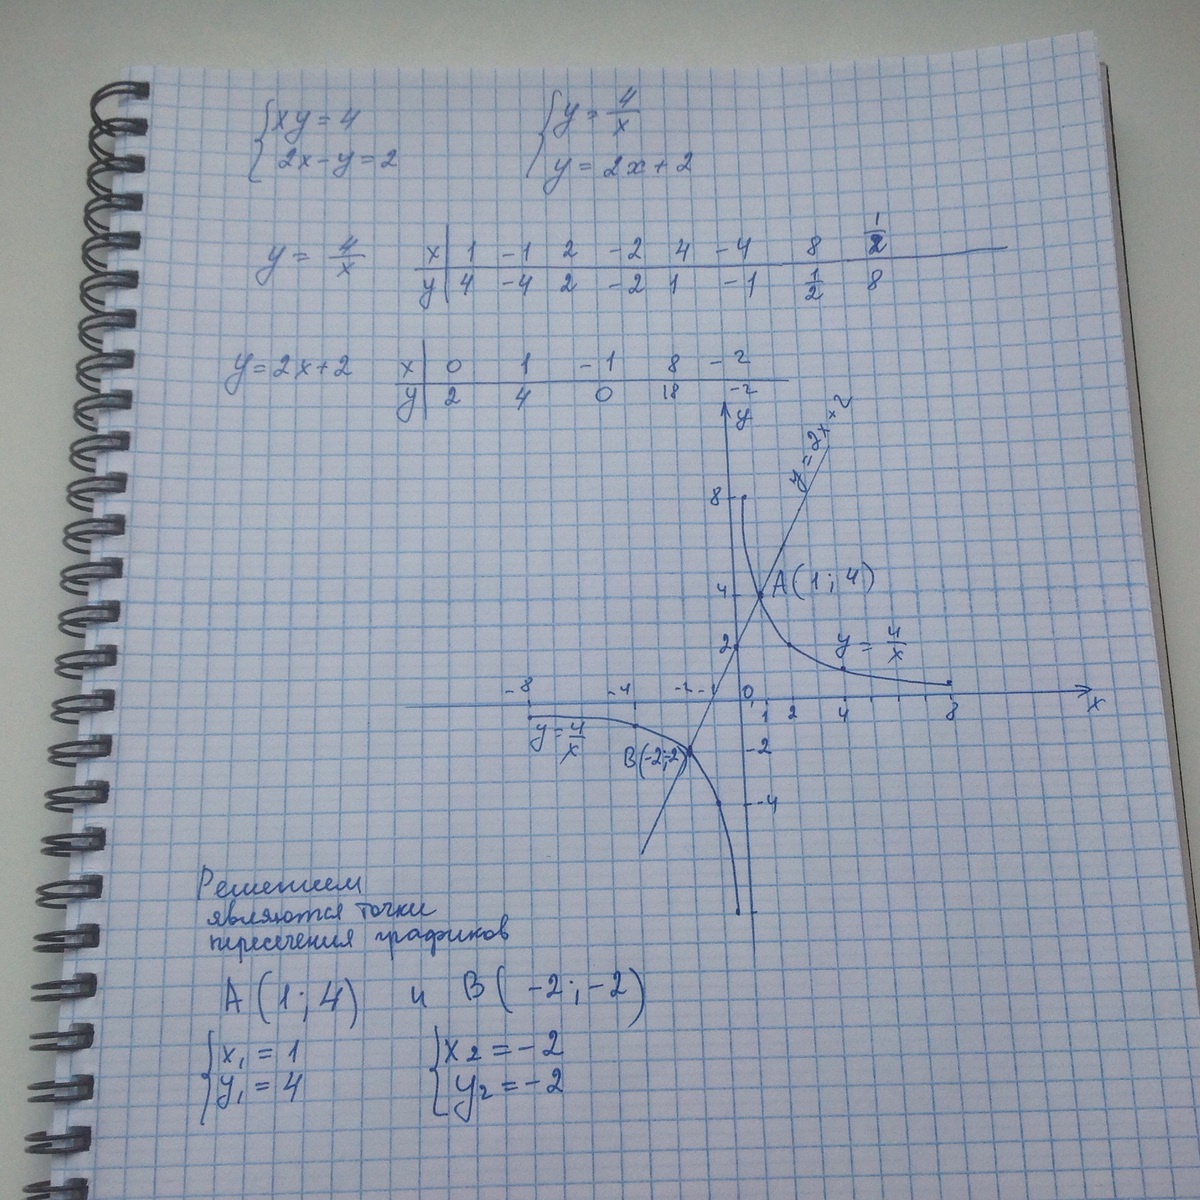 xy = 4
2x - y = 2
y = 4/x
y = 2x + 2
y = 4/x
x 1 -1 2 -2 4 -4 8 1/2
y 4 -4 2 -2 1 -1 1/2 8
y = 2x + 2
x 0 1 -1 8 -2
y 2 4 0 18 -2
y
y = 2x + 2
8
A(1; 4)
4
2
y = 4/x
-8 -4 -2 -1 0 1 2 4 8 x
y = 4/x
B(-2;-2)
-2
-4
Решением
являются точки
пересечения графиков
A(1; 4) и B(-2; -2)
x₁ = 1
y₁ = 4
x₂ = -2
y₂ = -2